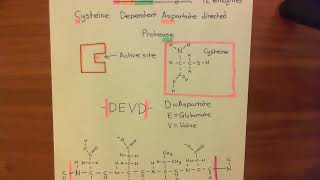 12 enzymes
Cysteine Dependent Aspartate directed
Protease
Active site
Cysteine
DEVD
D = Aspartate
E = Glutamate
V = Valine